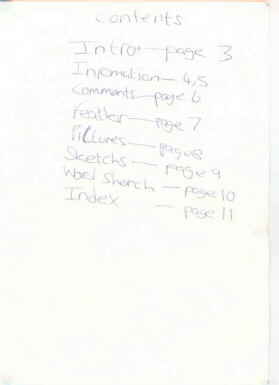 contents
Intro — page 3
Infomation — 4,5
Comments — page 6
Feather — page 7
Pictures — page 8
Sketchs — page 9
Word Sherch — page 10
Index — page 11